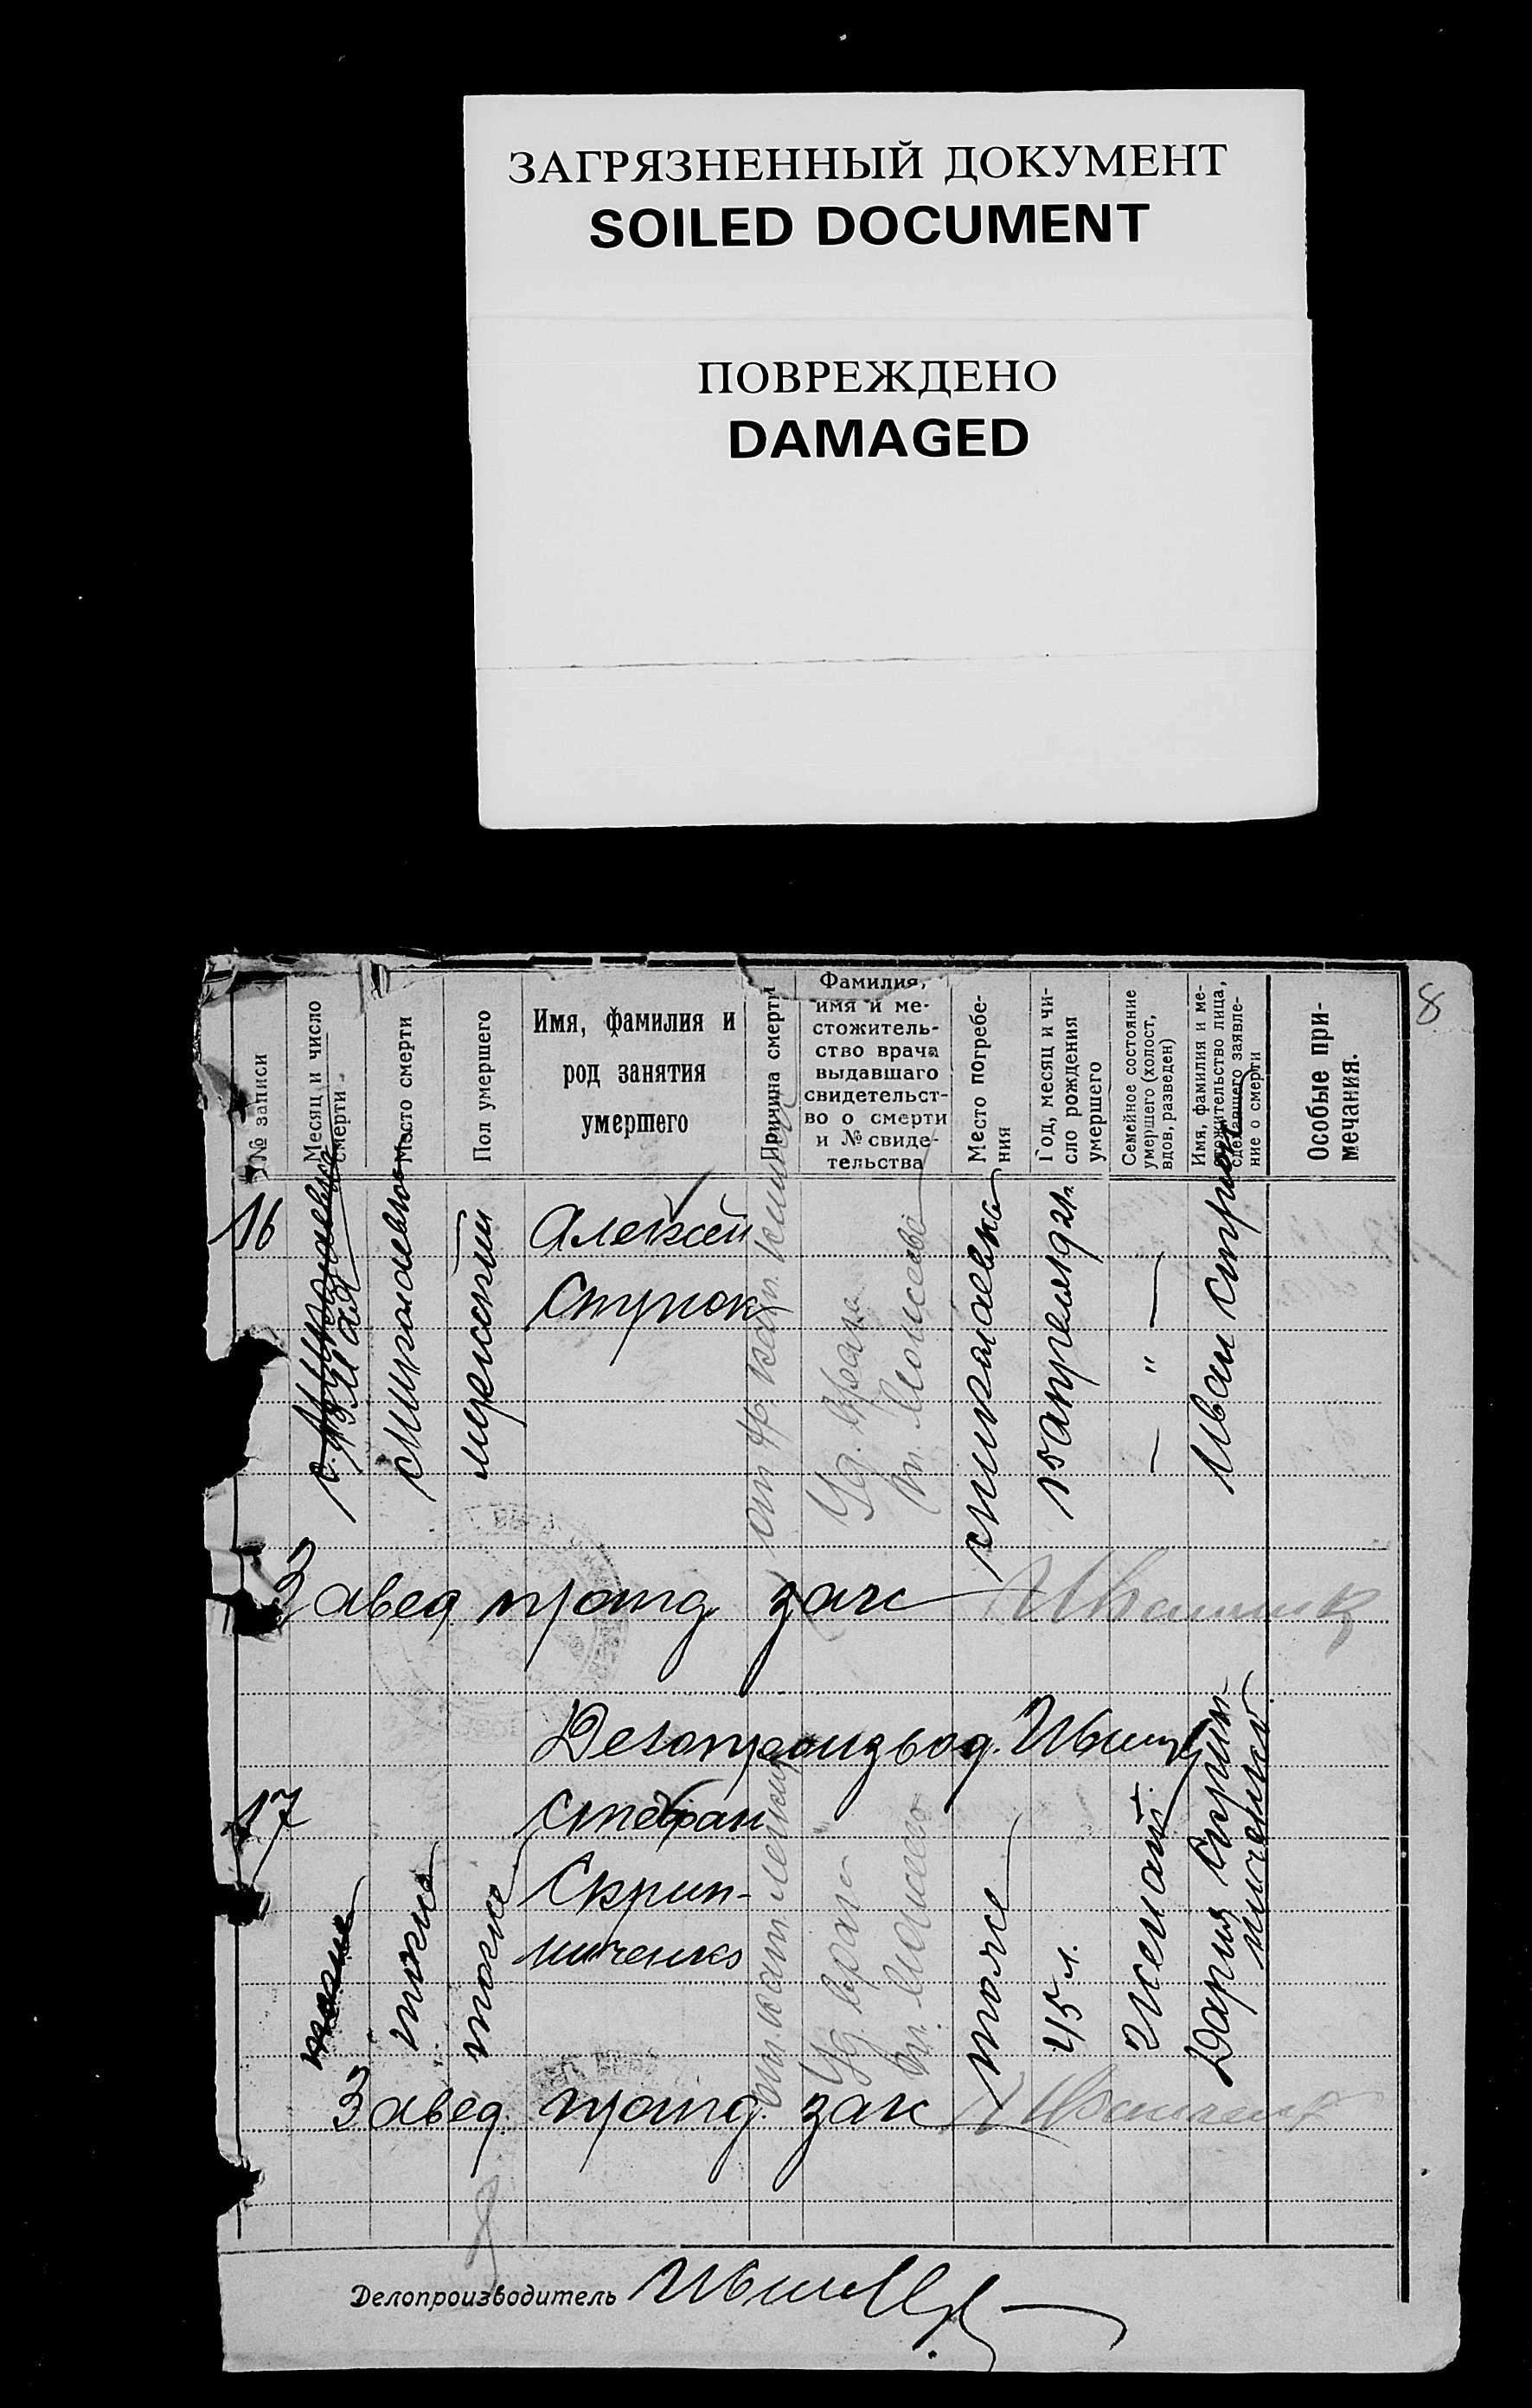 ЗАГРЯЗНЕННЫЙ ДОКУМЕНТ
SOILED DOCUMENT
ПОВРЕЖДЕНО
DAMAGED
8
№ записи
Месяц и число
смерти
Место смерти
Пол умершего
Имя, фамилия и
род занятия
умершего
Причина смерти
Фамилия,
имя и ме-
стожитель-
ство врача
выдавшаго
свидетельст-
во о смерти
и № свиде-
тельства
Место погребе-
ния
Год, месяц и чи-
сло рождения
умершего
Семейное состояние
умершего (холост,
вдов, разведен)
Имя, фамилия и ме-
стожительство лица,
сделавшего заявле-
ние о смерти
Особые при-
мечания.
16
Мая
Николаевка
мужской
Алексей
Ступок
от
кишек
Уд. врача
Моисеева
Николаевка
15 апреля 192
— " —
Иван
Завед. загс
Делопроизвод.
17
тоже
тоже
тоже
Стефан
Скрип-
ниченко
Уд. врача
тоже
45 л.
Женат.
Дария Скрип-
ниченко
Завед. загс
Делопроизводитель